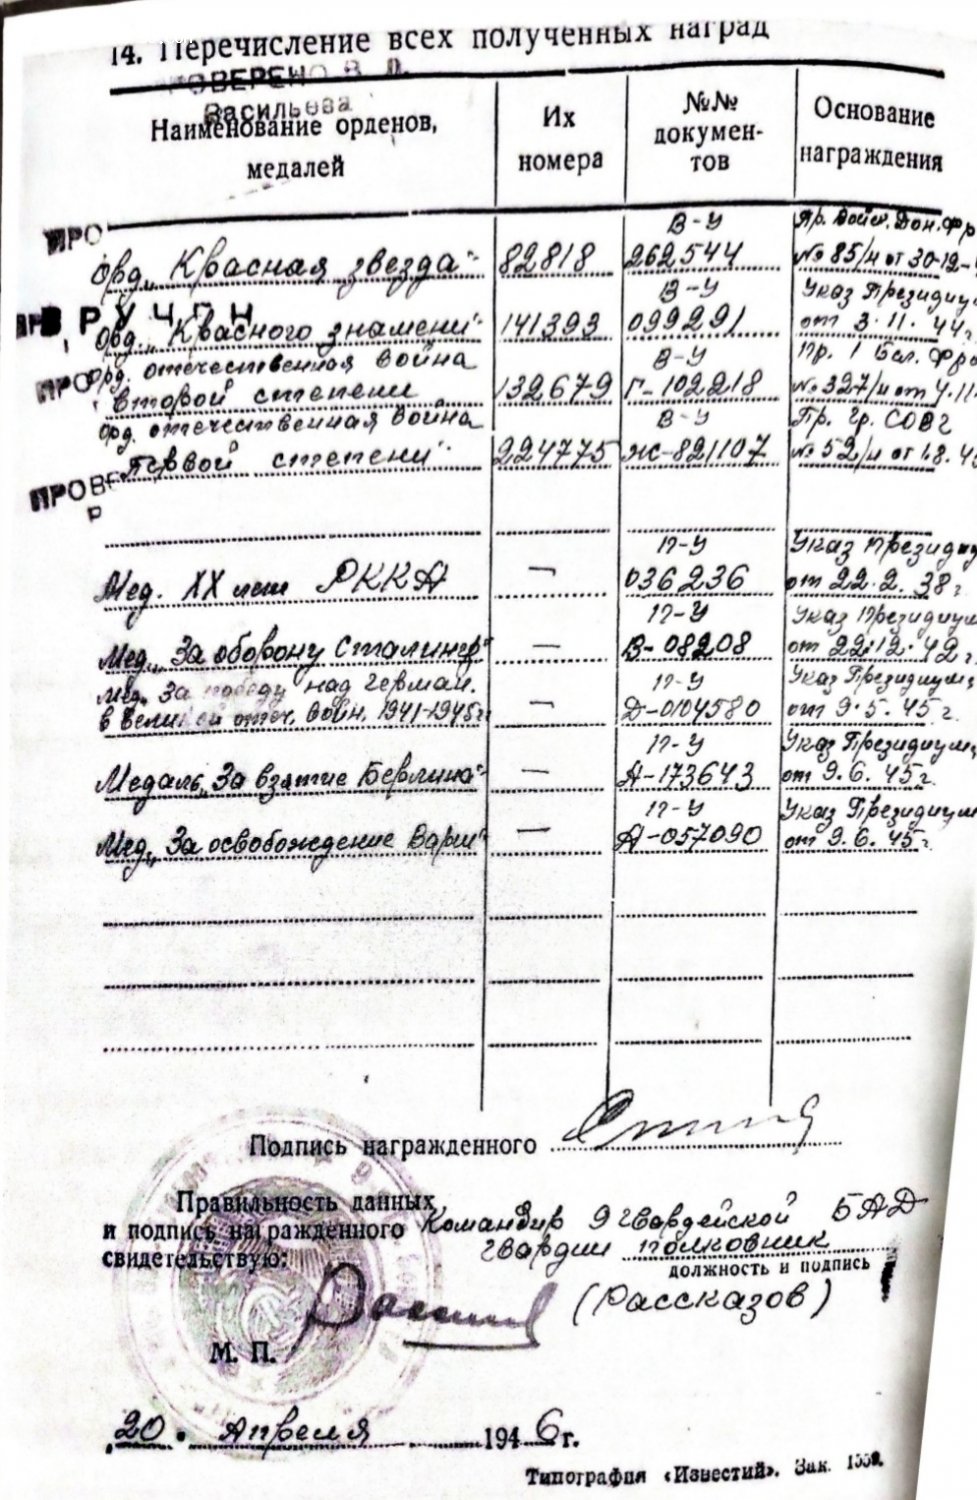 14. Перечисление всех полученных наград
ПРОВЕРЕНО В. П.
Васильева
Наименование орденов,
медалей
Их
номера
№№
докумен-
тов
Основание
награждения
ПРО
В-У
Пр. Войск. Дон. Фр
Орд. „Красная звезда" 82818 262544 № 85/н от 30-12-
ВРУЧЕН
В-У
Указ Президиу
Орд. „Красного знамени" 141393 099291 от 3.11.44г.
ПРО
Орд. отечественная война
В-У
Пр. 1 Бел. Фро
второй степени 132679 Г-102218 № 327/н от 4.11.
Орд. отечественная война
В-У
Пр. гр. СОВГ
Первой степени" 224775 Ж-821107 № 52/н от 1.8.45
ПРОВЕ
Р
П-У
Указ Президиу
Мед. XX лет РККА — 036236 от 22.2.38г.
П-У
Указ Президиум
Мед. „За оборону Сталингр" — В-08208 от 22.12.42г.
Мед. За победу над герман.
П-У
Указ Президиума
в великой отеч. войн. 1941-1945гг — Д-0104580 от 9.5.45г.
П-У
Указ Президиума
Медаль „За взятие Берлина" — А-173643 от 9.6.45г.
П-У
Указ Президиум
Мед. „За освобождение Варш" — А-057090 от 9.6.45г.
Подпись награжденного
Правильность данных
и подпись награжденного
свидетельствую:
Командир 9 гвардейской БАД
гвардии полковник
должность и подпись
(Рассказов)
М. П.
„20" Апреля 1946г.
Типография «Известий». Зак.